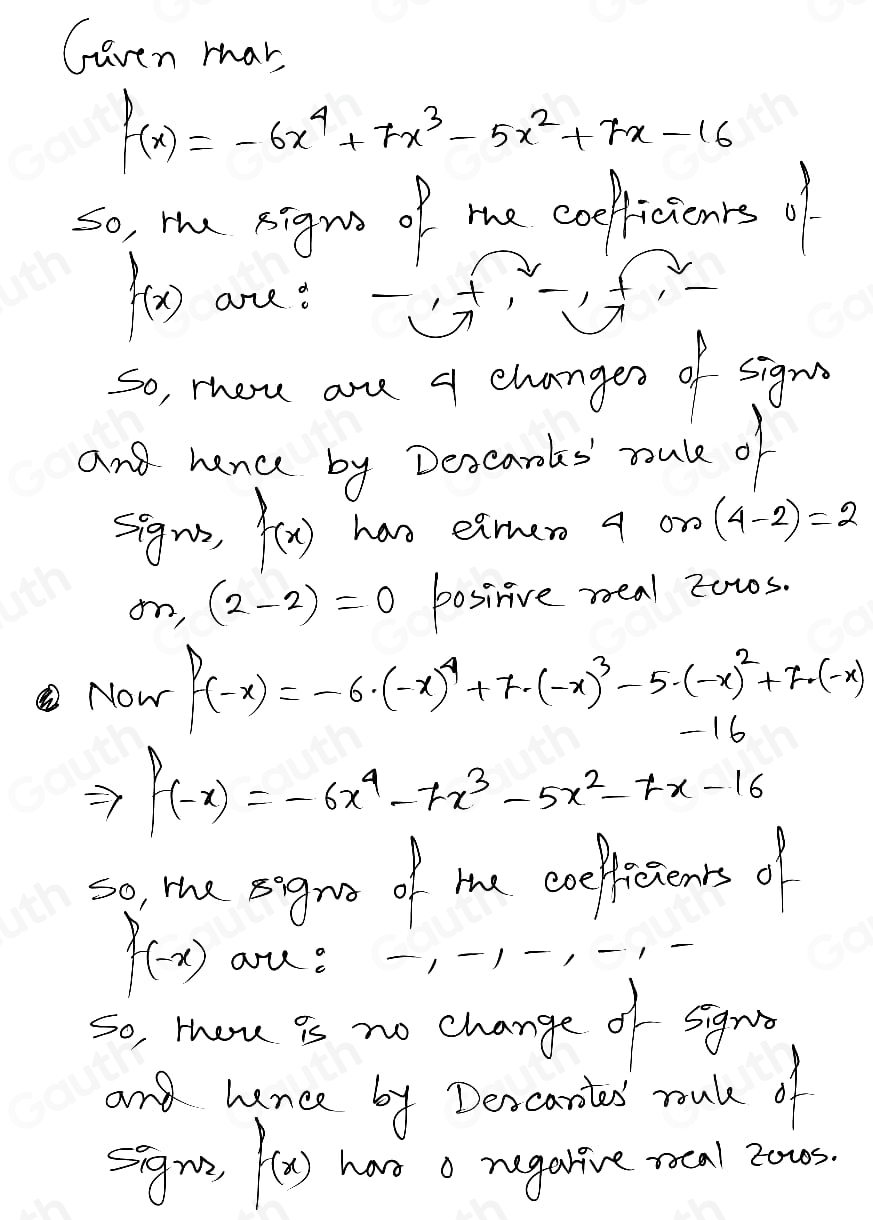 Given that,
f(x) = -6x⁴ + 7x³ - 5x² + 7x - 16
So, the signs of the coefficients of
f(x) are: -, +, -, +, -
So, there are 4 changes of signs
and hence by Descartes' rule of
signs, f(x) has either 4 or (4-2) = 2
or, (2-2) = 0 positive real zeros.
Now f(-x) = -6·(-x)⁴ + 7·(-x)³ - 5·(-x)² + 7·(-x)
-16
⇒ f(-x) = -6x⁴ - 7x³ - 5x² - 7x - 16
So, the signs of the coefficients of
f(-x) are: -, -, -, -, -
So, there is no change of signs
and hence by Descartes' rule of
signs, f(x) has 0 negative real zeros.